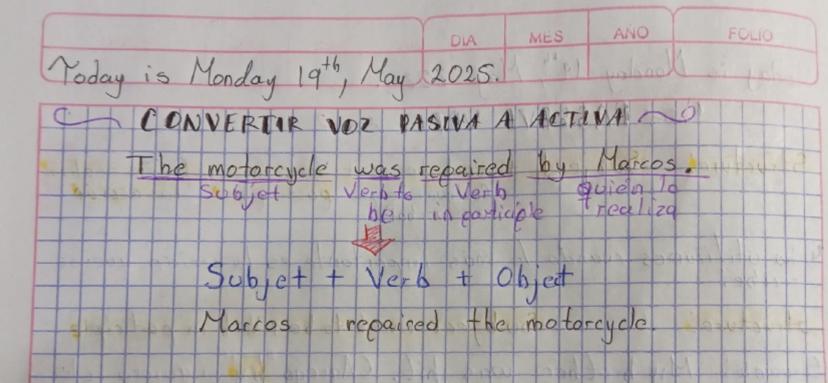 DIA MES AÑO FOLIO
Today is Monday 19th, May 2025.
CONVERTIR VOZ PASIVA A ACTIVA
The motorcycle was repaired by Marcos.
Subjet Verb to Verb quién lo
be in participle realiza
Subjet + Verb + Objet
Marcos repaired the motorcycle.